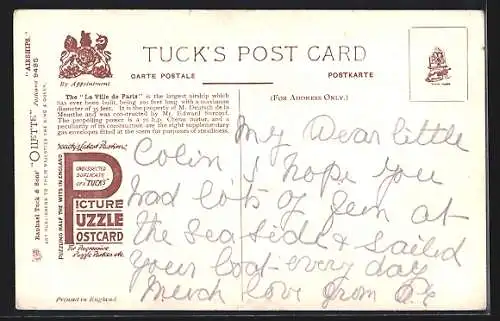 TUCK'S POST CARD
By Appointment
CARTE POSTALE
POSTKARTE
(FOR ADDRESS ONLY.)
The "La Ville de Paris" is the largest airship which
has ever been built, being 200 feet long with a maximum
diameter of 35 feet. It is the property of M. Deutsch de la
Meurthe and was constructed by Mr. Edward Surcouf.
The propelling power is a 70 h.p. Chenu motor, and a
peculiarity of its construction are the eight supplementary
gas envelopes fitted at the stern for purposes of steadiness.
"AIRSHIPS."
Postcard 9495
"OILETTE"
Raphael Tuck & Sons'
ART PUBLISHERS TO THEIR MAJESTIES THE KING & QUEEN.
PUZZLING HALF THE WITS IN ENGLAND
Society's latest Pastime
DISSECTED
DUPLICATE
of a "TUCK'S"
PICTURE
PUZZLE
POSTCARD
For Progressive
Puzzle Parties etc.
Printed in England
My Dear little
Colin I hope you
had lots of fun at
the sea side & sailed
your boat every day
Much love from